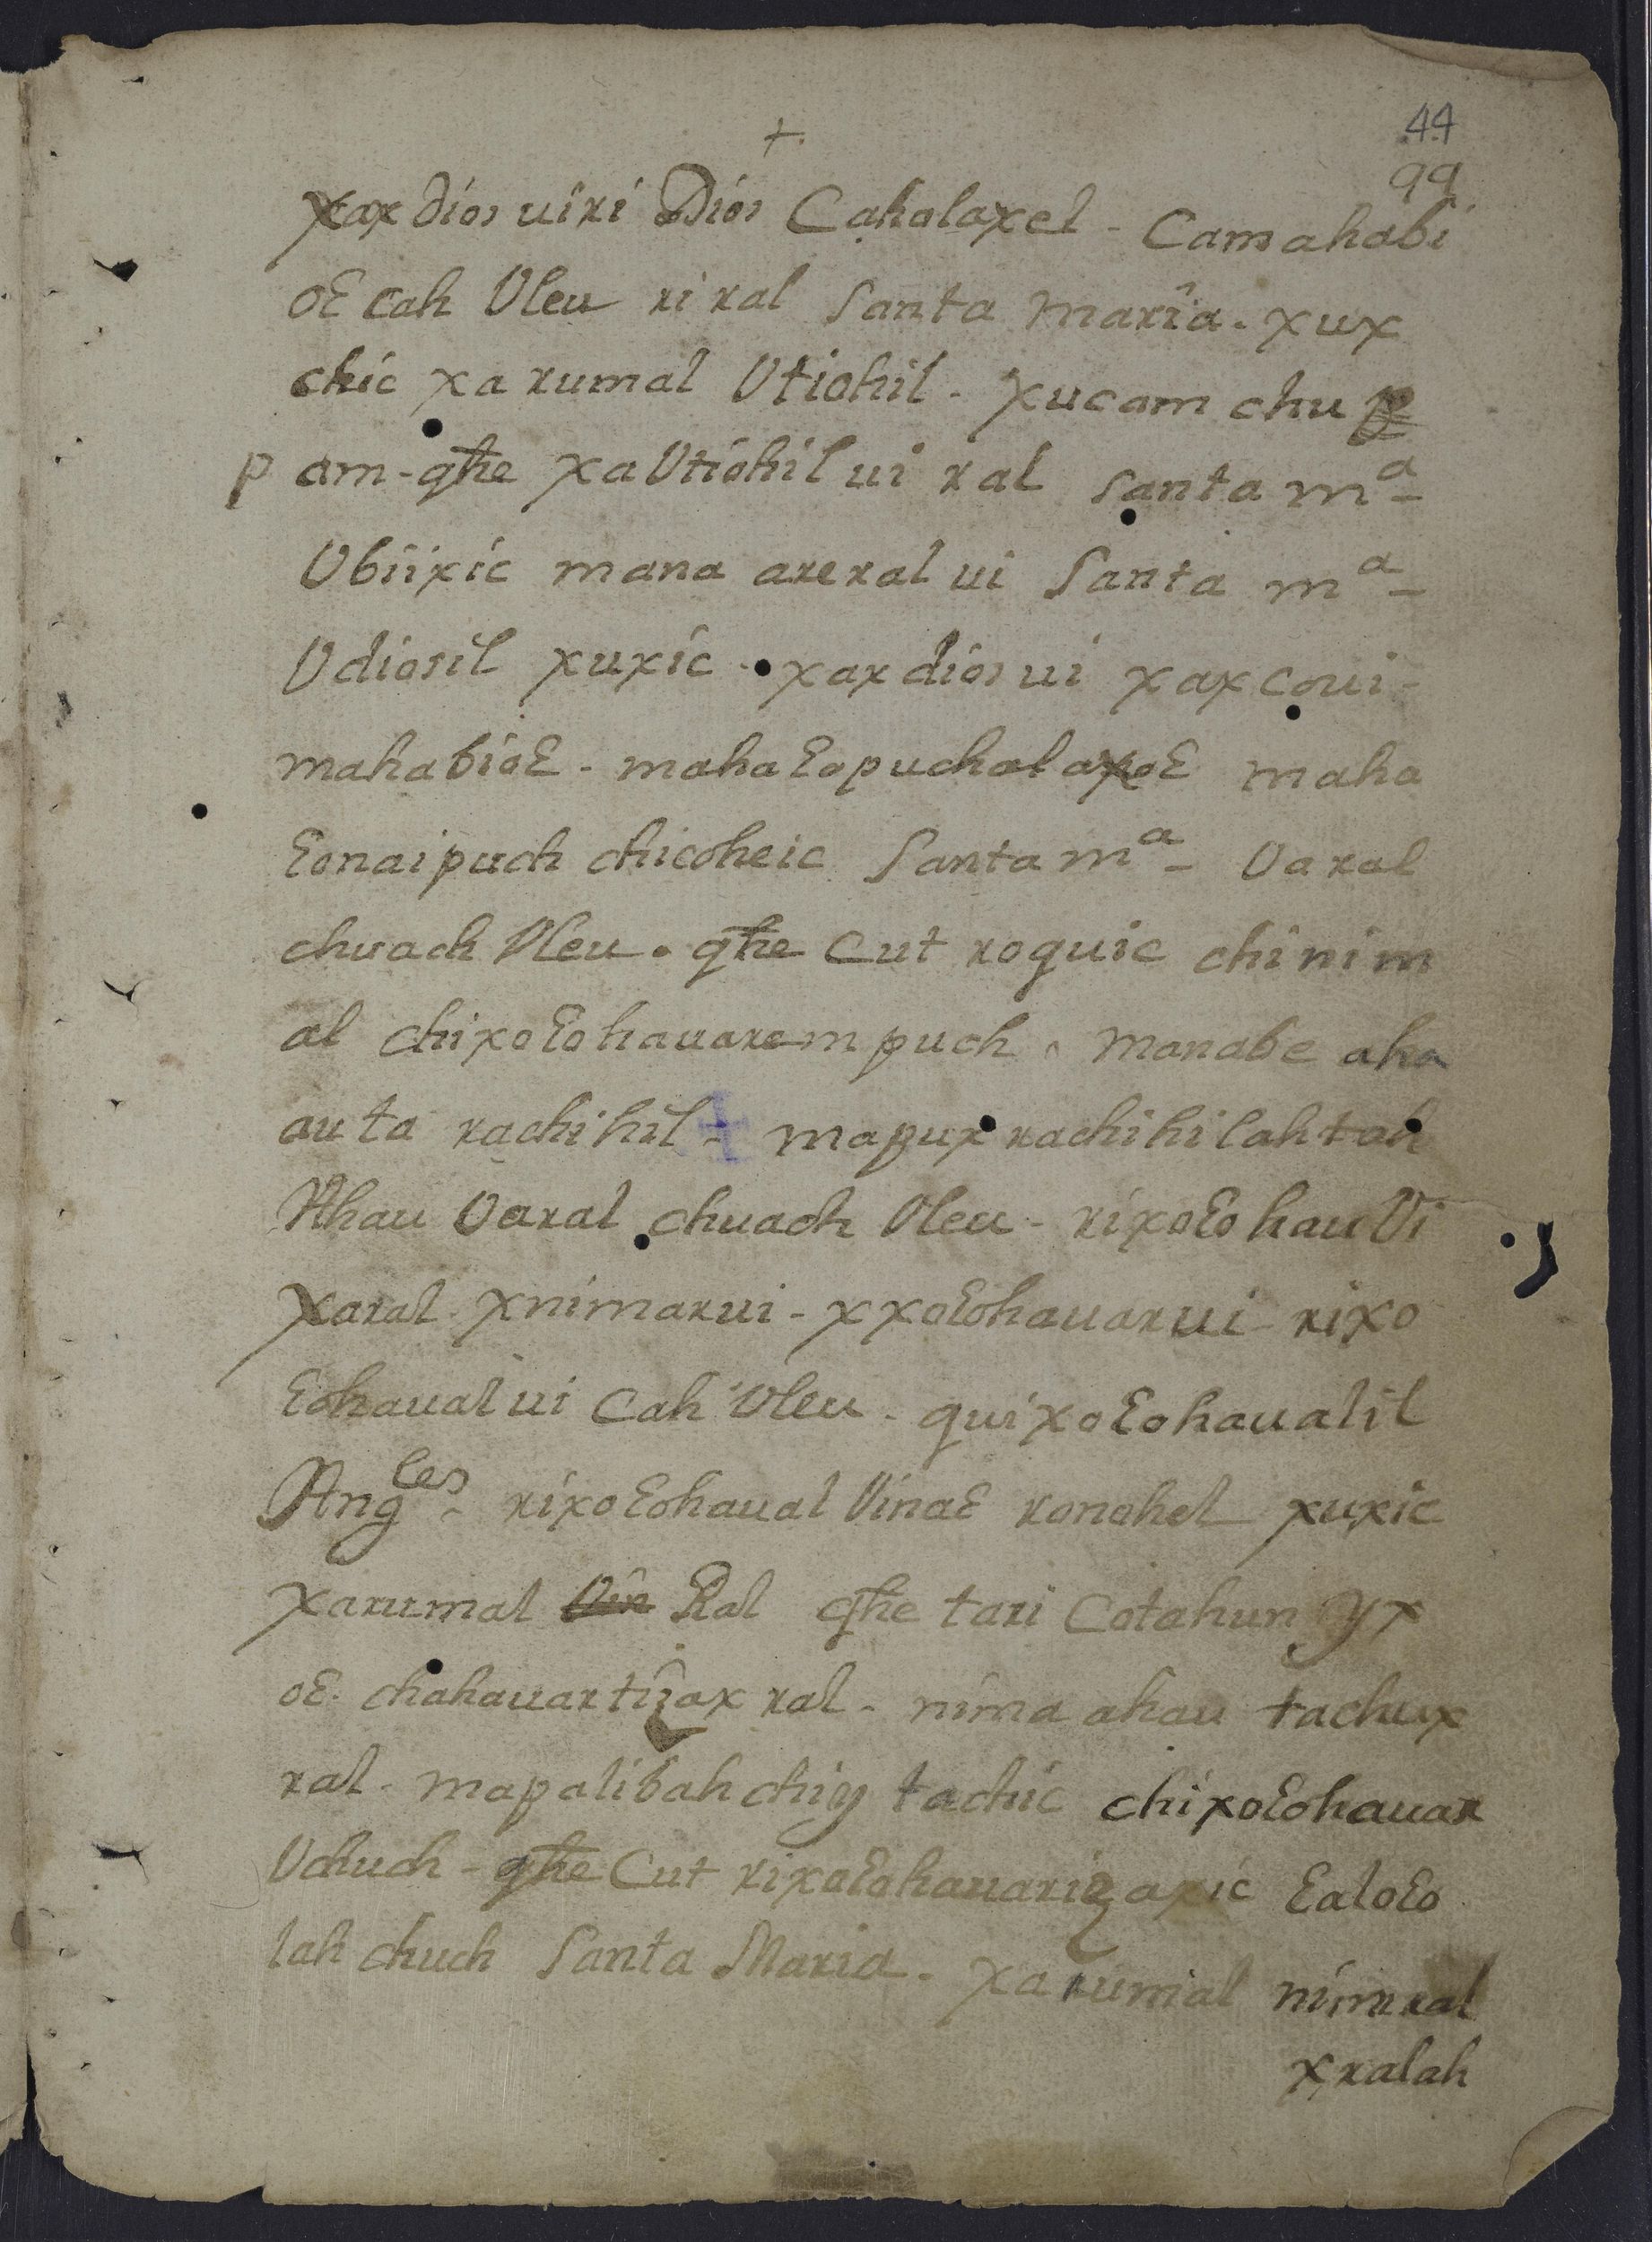 +
44
99
xax dios uiri Dios Cakolaxel - Camahabi
oɛ cah Uleu ri ral Santa maria - xux
chic xa rumal Utiohil - xucam chu p
p am - qħe xa Utiohil ui ral santa mᵃ -
Ubiixic mana are ral ui Santa mᵃ -
Udiosil xuxic - xax dios ui xax coui -
mahabioɛ - maha ɛopuchalaxoɛ maha
ɛonaipuch chicoheic Santa mᵃ - Uaral
chuach Uleu - qħe Cut roquic chi nim
al chixoɛohauarem puch - manabe aha
au ta rachihil - mapux rachihilah tah
Ahau Uaral chuach Uleu - rixoɛohau Ui
xaral - xnimarui - xxoɛohauarui rixo
ɛohaual ui Cah Uleu - quixoɛohaualil
Angˡᵉˢ - rixoɛohaual Uinaɛ ronohel xuxic
xarumal Uin Ral qħe tari Cotahun yx
oɛ - chahauartiзax ral - nima ahau tachux
ral - mapalibah chiy tachic chixoɛohauar
Uchuch - qħe Cut rixoɛohauariзaxic ɛaloɛo
lah chuch Santa Maria - xa rumal nim ral
xralah